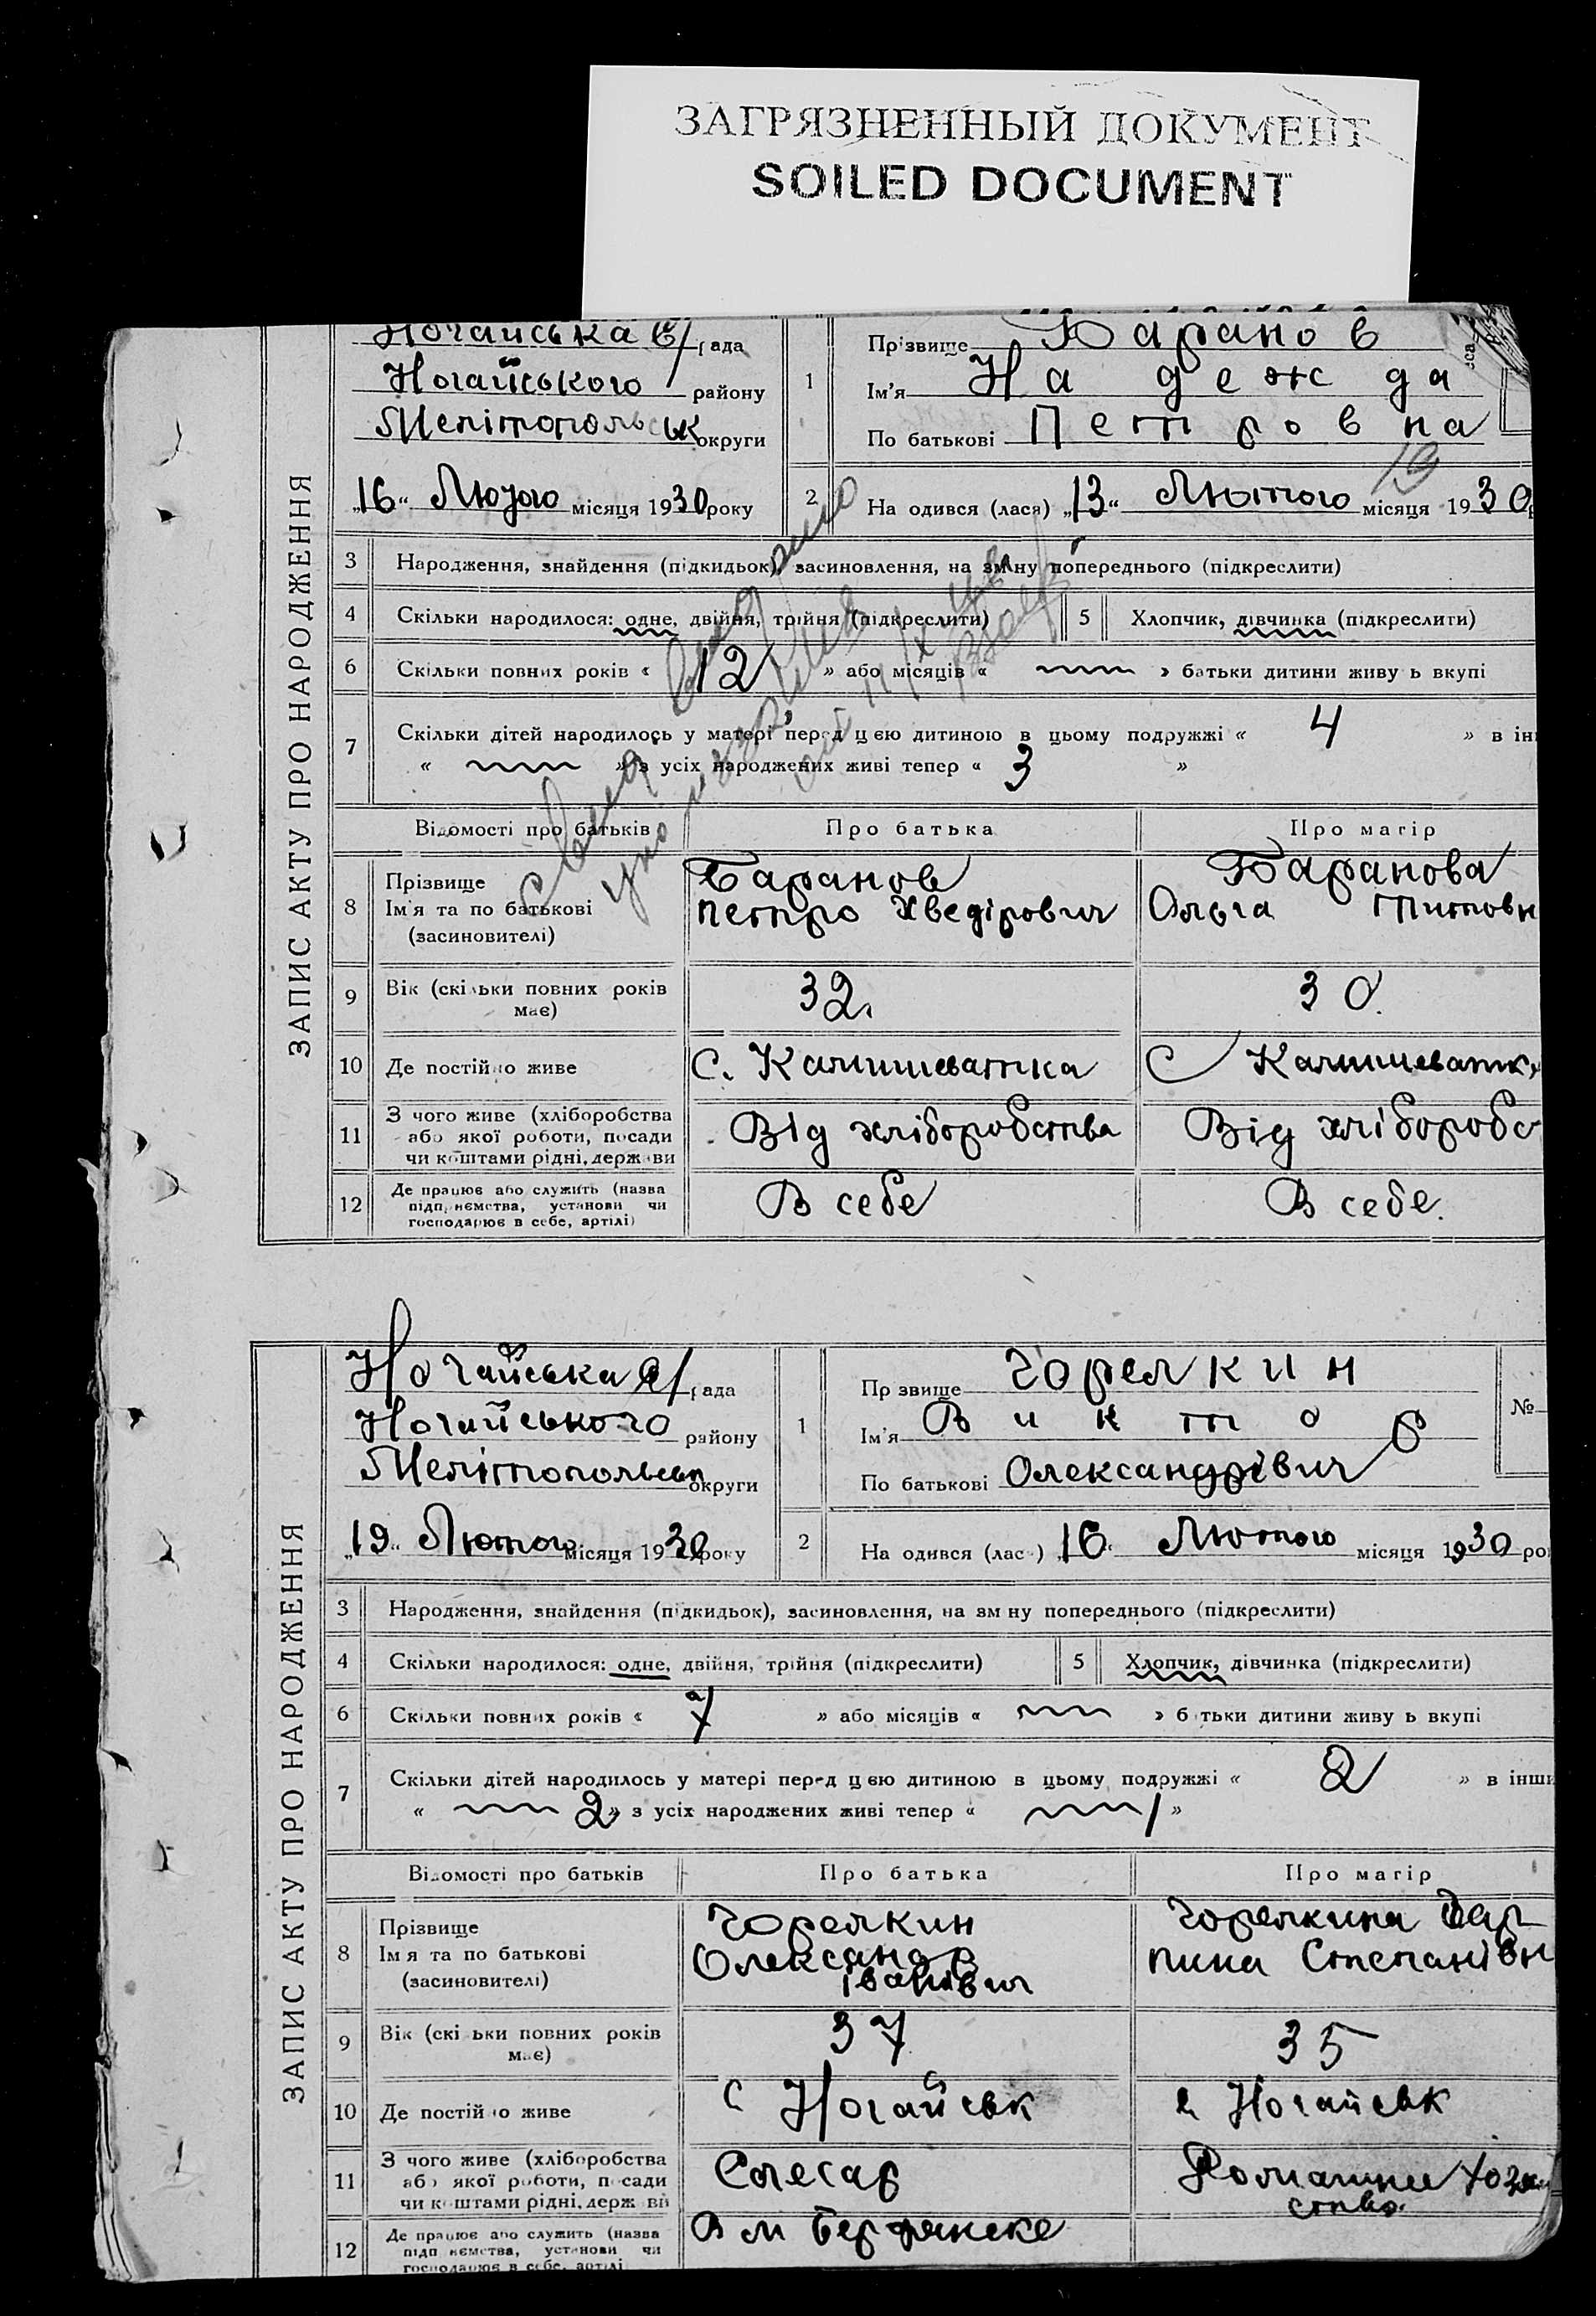 ЗАГРЯЗНЕННЫЙ ДОКУМЕНТ
SOILED DOCUMENT
ЗАПИС АКТУ ПРО НАРОДЖЕННЯ
Ногайська с/рада
Ногайського району
Мелітопольськ округи
„16“ Лютого місяця 1930 року
1 Прізвище Баранов
Ім'я Надежда
По батькові Петровна
2 На одився (лася) „13“ Лютого місяця 1930
3 Народження, знайдення (підкидьок), засиновлення, на зміну попереднього (підкреслити)
4 Скільки народилося: одне, двійня, трійня (підкреслити) 5 Хлопчик, дівчинка (підкреслити)
6 Скільки повних років « 12 » або місяців « » батьки дитини живу ь вкупі
7 Скільки дітей народилось у матері перед цею дитиною в цьому подружжі « 4 » в ін
« » з усіх народжених живі тепер « 3 »
Відомості про батьків Про батька Про матір
8 Прізвище Баранов Баранова
Ім'я та по батькові Петро Хведірович Ольга Титовн
(засиновителі)
9 Вік (скільки повних років має) 32. 30.
10 Де постійно живе с. Калишеватка С Калишеватк
11 З чого живе (хліборобства Від хліборобства Від хліборобс
або якої роботи, посади
чи коштами рідні, держави
12 Де працює або служить (назва В себе В себе.
підприємства, установи чи
господарює в себе, артілі)
ЗАПИС АКТУ ПРО НАРОДЖЕННЯ
Ногайська с/рада
Ногайського району
Мелітопольськ округи
„19“ Лютого місяця 1930 року
1 Пр звище Чорелкин
Ім'я Виктор
По батькові Олександрівич
№
2 На одився (лас ) „16“ Лютого місяця 1930 ро
3 Народження, знайдення (підкидьок), засиновлення, на зм ну попереднього (підкреслити)
4 Скільки народилося: одне, двійня, трійня (підкреслити) 5 Хлопчик, дівчинка (підкреслити)
6 Скільки повних років « 7 » або місяців « » б тьки дитини живу ь вкупі
7 Скільки дітей народилось у матері перед цею дитиною в цьому подружжі « 2 » в інши
« 2 » з усіх народжених живі тепер « 1 »
Відомості про батьків Про батька Про матір
8 Прізвище Чорелкин Чорелкина Гар
Ім я та по батькові Олександр пина Степанівн
(засиновителі) Іванівич
9 Вік (скі ьки повних років має) 37 35
10 Де постій о живе с Ногайськ с. Ногайськ
11 З чого живе (хліборобства Слесар Домашнее хозяй
або якої роботи, посади ство.
чи коштами рідні, держ ви
12 Де працює або служить (назва В м Бердянске
підп иємства, установи чи
господарює в себе, артілі